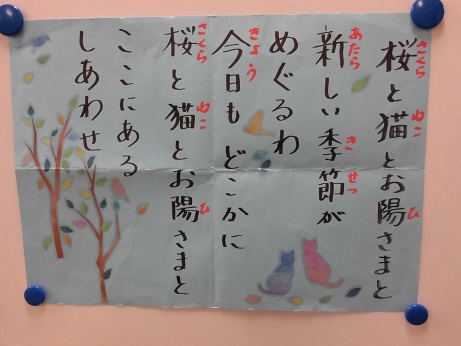 桜と猫とお陽さまと
新しい季節が
めぐるわ
今日も どこかに
桜と猫とお陽さまと
ここにある
しあわせ